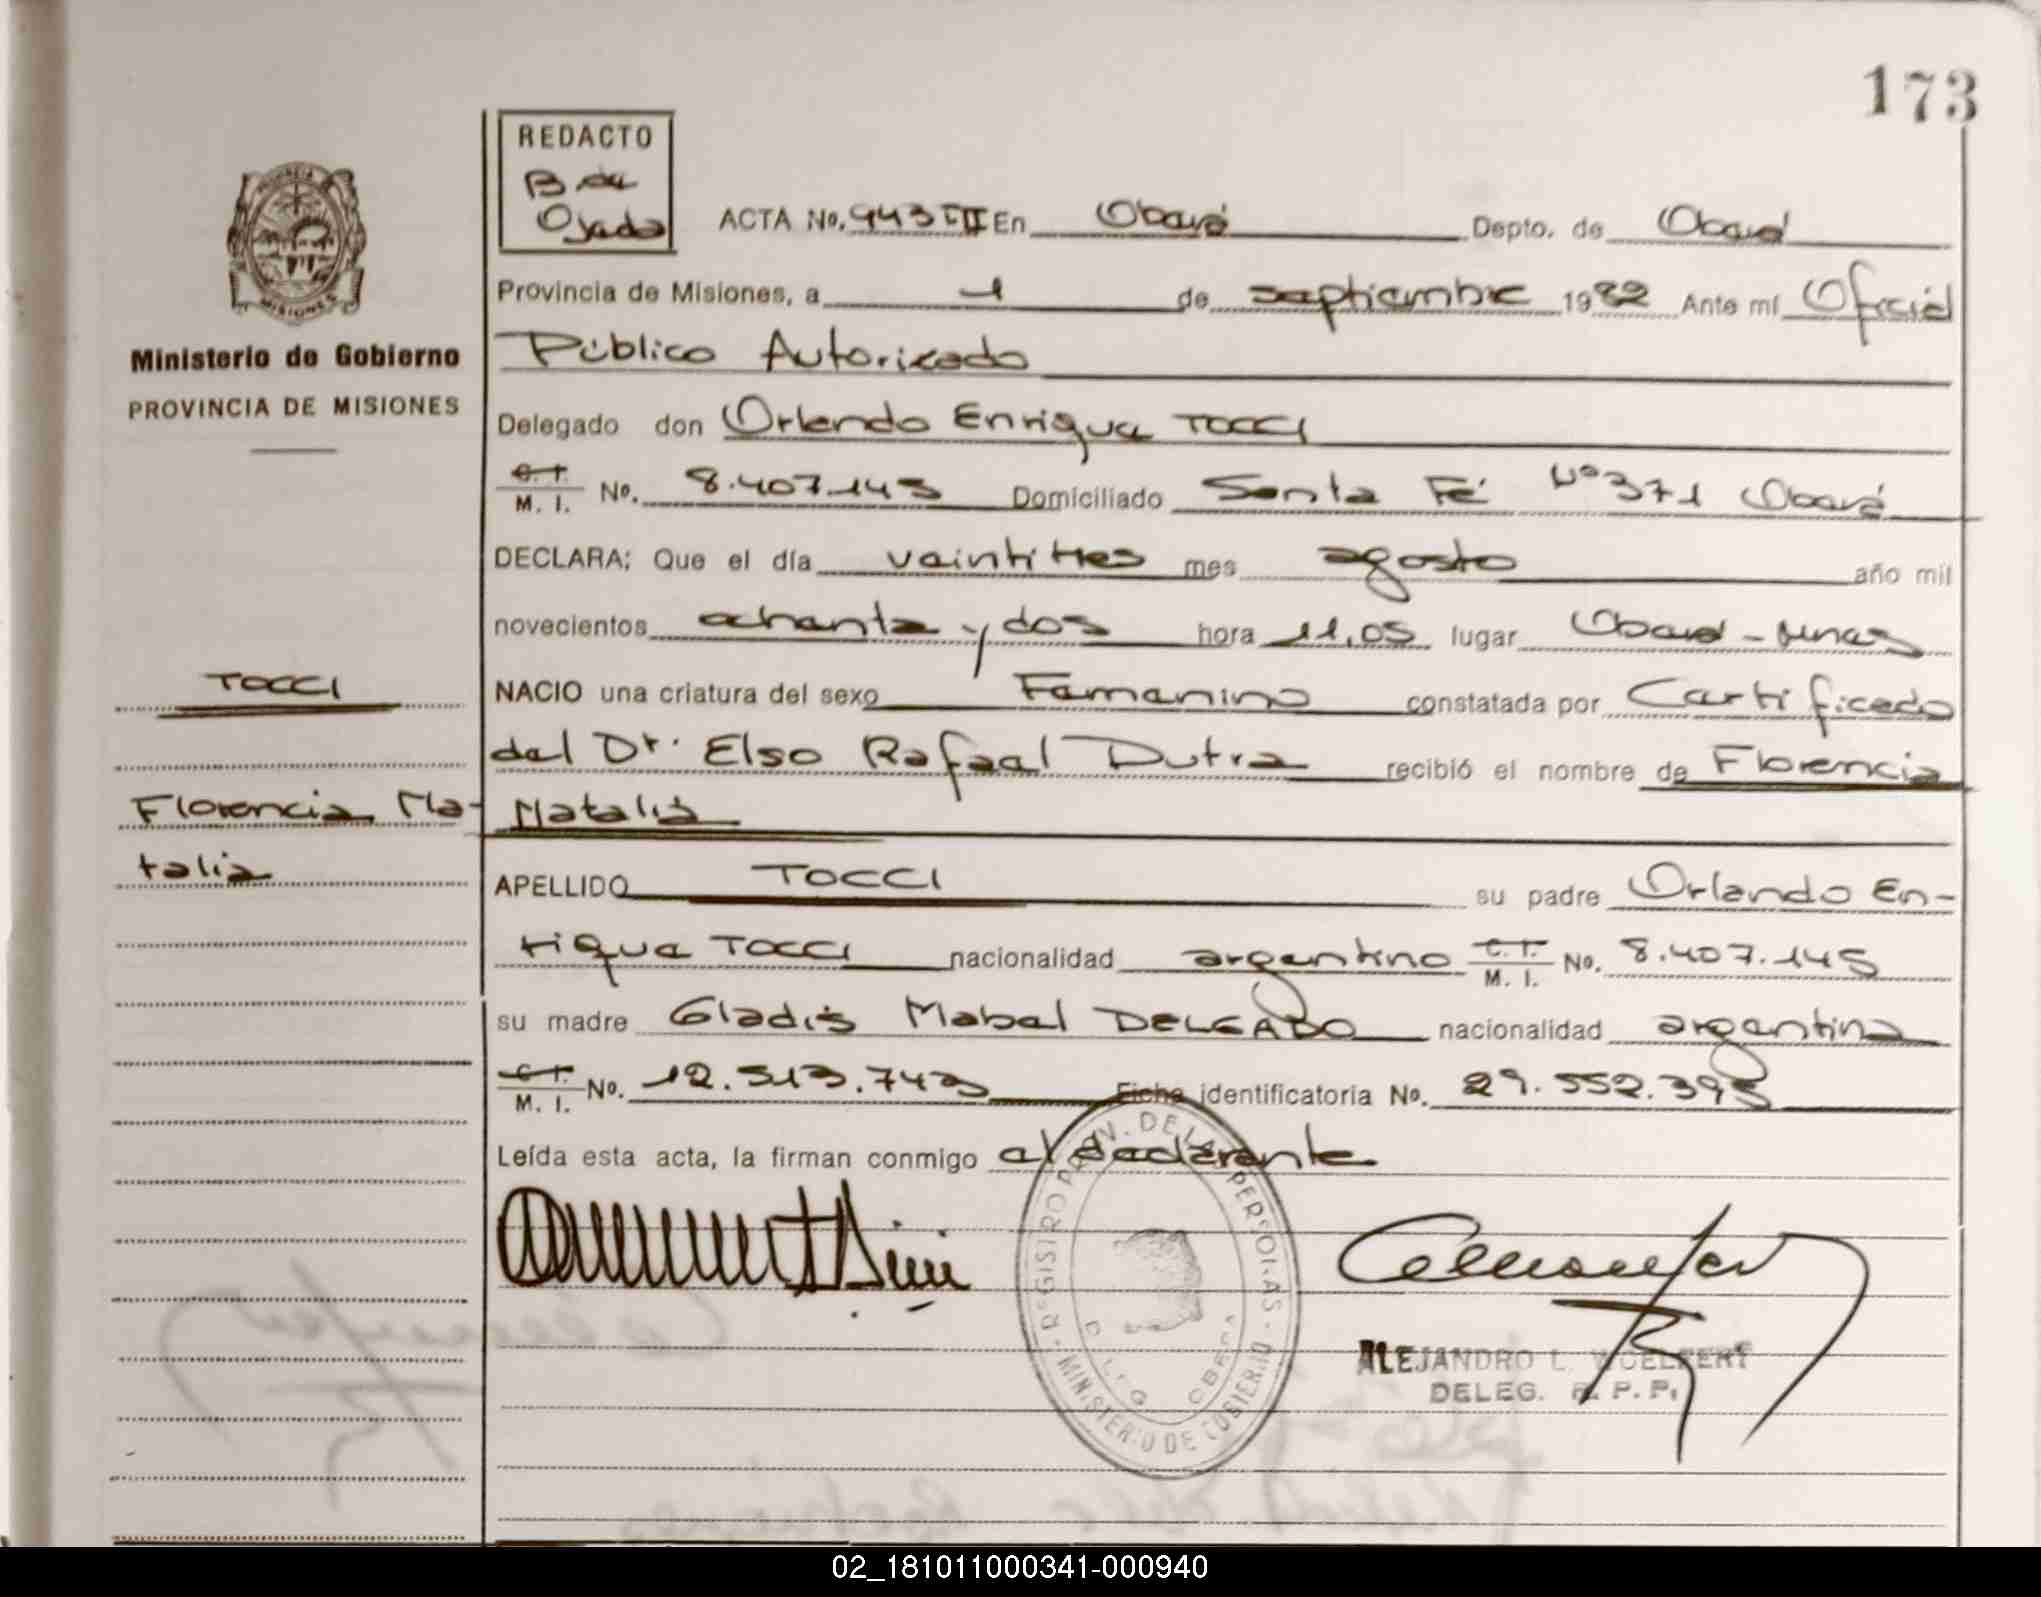 173
REDACTO
B de
Ojeda
ACTA No. 943 TII En Oberá Depto. de Oberá
Provincia de Misiones, a 1 de septiembre 1982 Ante mí Oficial
Público Autorizado
Ministerio de Gobierno
PROVINCIA DE MISIONES
Delegado don Orlando Enrique TOCCI
C. I. M. I. No. 8.407.145 Domiciliado Santa Fé Nº 371 Oberá
DECLARA; Que el día veintitres mes agosto año mil
novecientos ochenta y dos hora 11,05 lugar Oberá - Mnes
TOCCI
NACIO una criatura del sexo Femenino constatada por Certificado
del Dr. Elso Rafael Dutra recibió el nombre de Florencia
Florencia Na-
Natalia
talia
APELLIDO TOCCI su padre Orlando En-
rique TOCCI nacionalidad argentino C. I. M. I. No. 8.407.145
su madre Gladis Mabel DELGADO nacionalidad argentina
C. I. M. I. No. 12.513.743 Ficha identificatoria No. 29.552.395
Leída esta acta, la firman conmigo el declarante
REGISTRO PROV. DE LAS PERSONAS
MINISTERIO DE GOBIERNO
ALEJANDRO L. WOELFERT
DELEG. R. P. P.
02_181011000341-000940